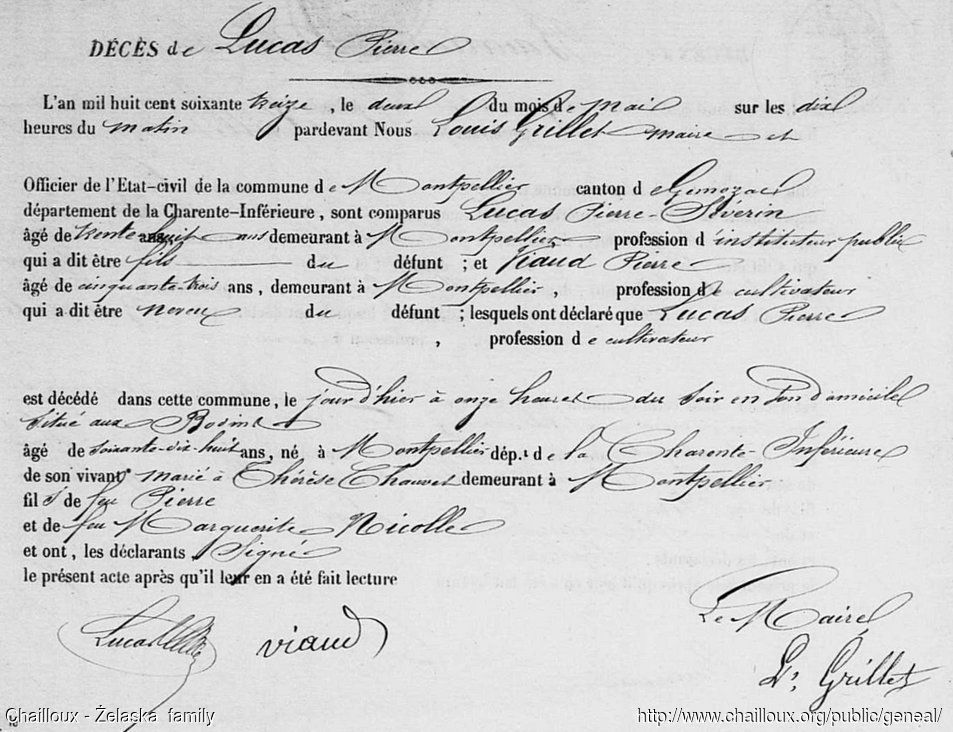 DÉCÈS de Lucas Pierre
L'an mil huit cent soixante treize, le deux du mois de mai sur les dix
heures du matin pardevant Nous Louis Grillet maire et
Officier de l'Etat-civil de la commune de Montpellier canton de Gemozac
département de la Charente-Inférieure, sont comparus Lucas Pierre-Séverin
âgé de trente huit ans demeurant à Montpellier profession d'instituteur public
qui a dit être fils du défunt ; et Viaud Pierre
âgé de cinquante-trois ans, demeurant à Montpellier, profession de cultivateur
qui a dit être neveu du défunt ; lesquels ont déclaré que Lucas Pierre
, profession de cultivateur
est décédé dans cette commune, le jour d'hier à onze heures du soir en son domicile
situé aux
âgé de soixante-dix-huit ans, né à Montpellier dép.t de la Charente-Inférieure
de son vivant marié à Thérèse Chauvet demeurant à Montpellier
fils de feu Pierre
et de feu Marguerite Nicolle
et ont, les déclarants, signé
le présent acte après qu'il leur en a été fait lecture
Le Maire
Lucas viaud
L. Grillet
Chailloux - Żelaska family http://www.chailloux.org/public/geneal/